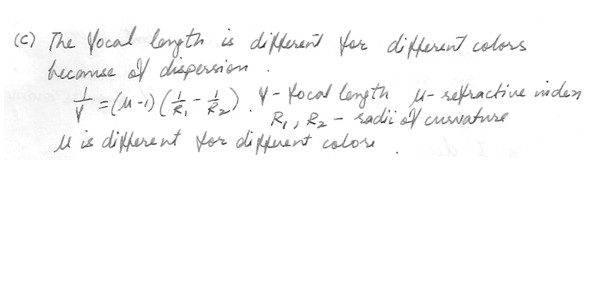 (c) The focal length is different for different colors
because of dispersion .
1/f = (μ-1) (1/R₁ - 1/R₂) . f - focal length μ - refractive index
R₁, R₂ - radii of curvature
μ is different for different colors .